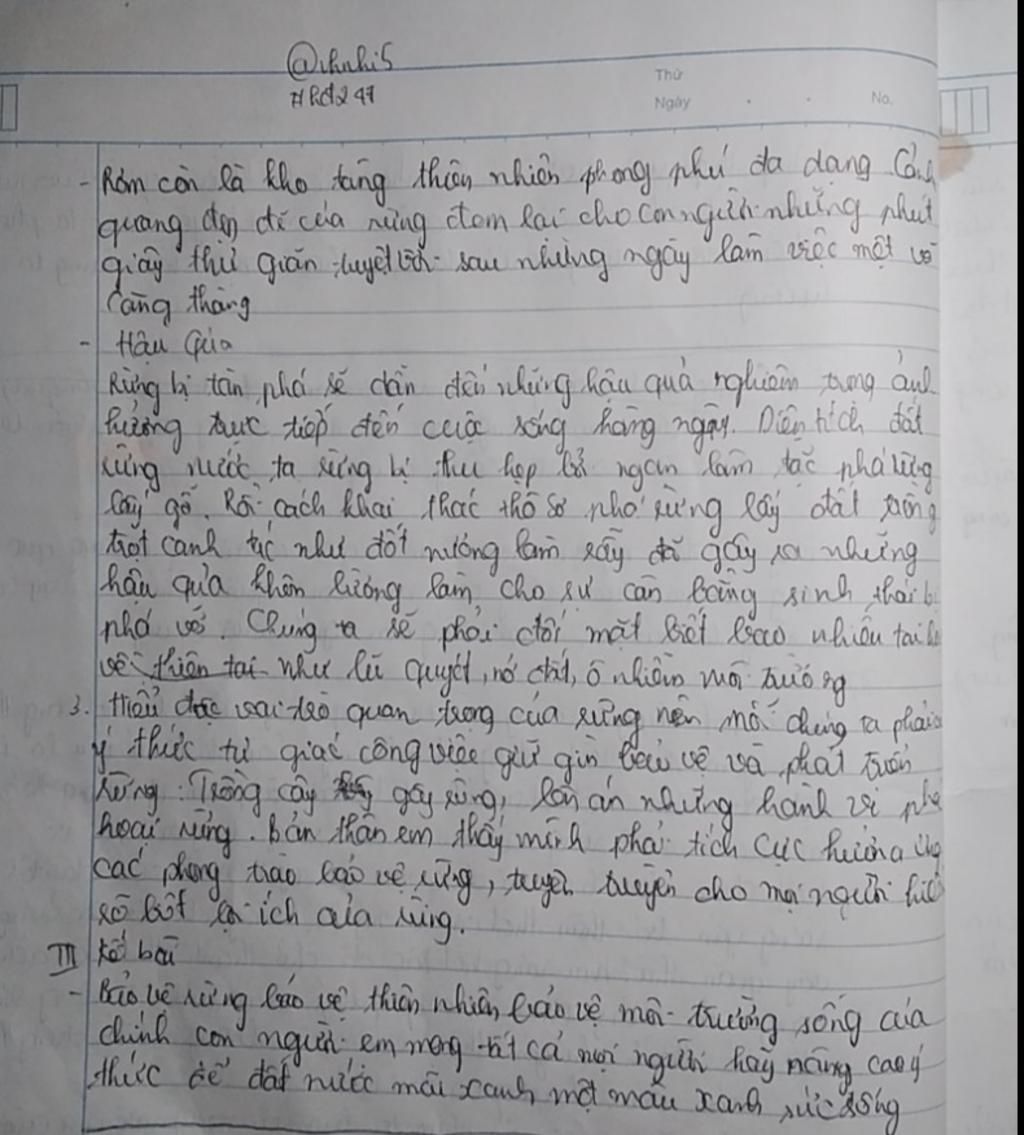 @thnhi5
Thứ
Ngày
No.
- Rừng còn là kho tàng thiên nhiên phong phú đa dạng Cảnh
quang đẹp đẽ của rừng đem lại cho con người những phút
giây thư giãn tuyệt vời sau những ngày làm việc mệt và
Căng thẳng
- Hậu Qủa
Rừng bị tàn phá sẽ dẫn đến những hậu quả nghiêm trọng ảnh
hưởng trực tiếp đến cuộc sống hàng ngày. Diện tích đất
rừng nước ta rừng bị thu hẹp bởi ngan lâm tặc phá rừng
lấy gỗ. Rồi cách khai thác thô sơ phá rừng lấy đất trồng
trọt canh tác như đốt nương làm rẫy đã gây ra những
hậu qủa khôn lường làm cho sự cân bằng sinh thái bị
phá vỡ. Chúng ta sẽ phải đối mặt biết bao nhiêu tai
về thiên tai như lũ quyét, nở đất, ô nhiễm môi trường
3. Hiểu được vai trò quan trọng của rừng nên mỗi chúng ta phải
ý thức tự giác công việc giữ gìn bảo vệ và phát triển
rừng: Trồng cây gây rừng, lên án những hành vi phá
hoại rừng. Bản thân em thấy mình phải tích cực hưởng ứng
các phong trào bảo vệ rừng, tuyên truyền cho mọi người hiểu
rõ biết lợi ích của rừng.
III Kết bài
- Bảo vệ rừng bảo vệ thiên nhiên bảo vệ môi trường sống của
chính con người em mong tất cả mọi người hãy nâng cao ý
thức để đất nước mãi xanh một màu xanh sức sống